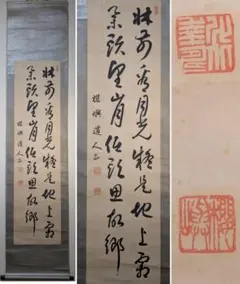 牀前看月光疑是地上霜
举頭望山月低頭思故鄉
櫻嶼道人